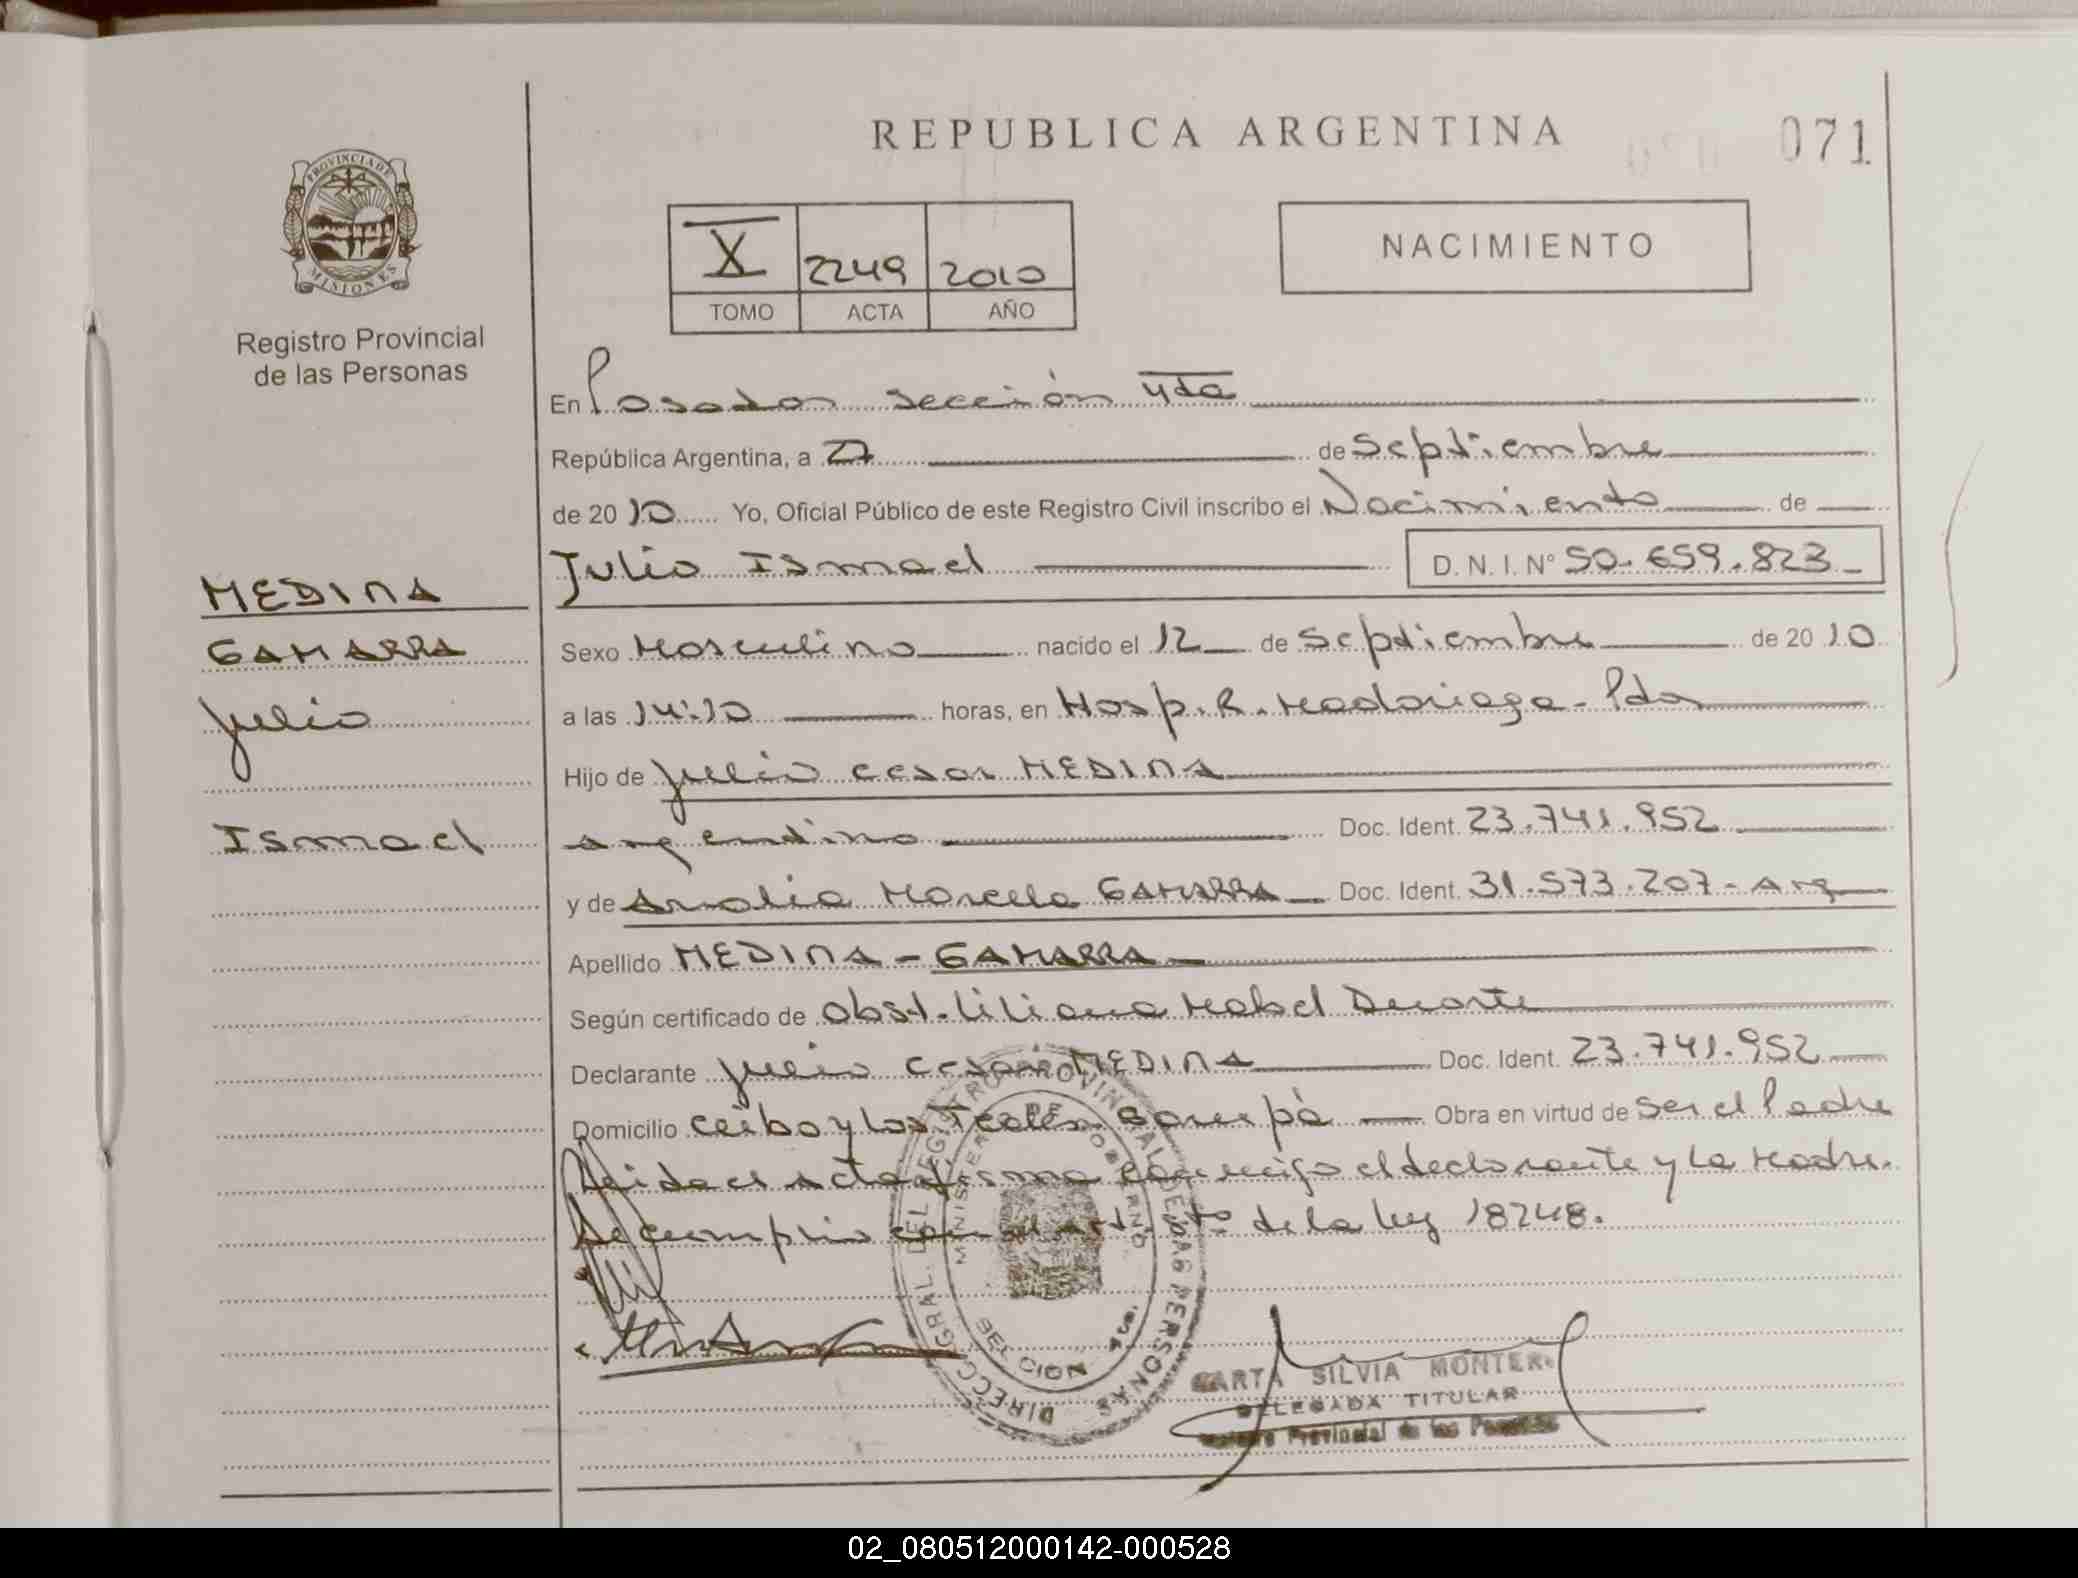 REPUBLICA ARGENTINA
071
PROVINCIA DE
MISIONES
Registro Provincial
de las Personas
X 2249 2010
TOMO ACTA AÑO
NACIMIENTO
En Posadas sección 4ta
República Argentina, a 27 de Septiembre
de 2010 Yo, Oficial Público de este Registro Civil inscribo el Nacimiento de
Julio Ismael D. N. I. N° 50.659.823
MEDINA
GAMARRA
Julio
Ismael
Sexo Masculino nacido el 12 de Septiembre de 2010
a las 14:10 horas, en Hosp. R. Madariaga - Pdas
Hijo de Julio Cesar MEDINA
argentino Doc. Ident. 23.741.952
y de Analia Marcela GAMARRA Doc. Ident. 31.573.207 - Arg
Apellido MEDINA - GAMARRA
Según certificado de Obst. Liliana Mabel Duarte
Declarante Julio Cesar MEDINA Doc. Ident. 23.741.952
Domicilio Ceibo y Los Garupá Obra en virtud de ser el Padre
el acta firma conmigo el declarante y la Madre.
Se cumplio con el art. de la ley 18248.
DIRECC. GRAL. DEL REGISTRO PROVINCIAL DE LAS PERSONAS
MINISTERIO DE GOBIERNO
SECCION 4ta.
MARTA SILVIA MONTERO
DELEGADA TITULAR
Registro Provincial de las Personas
02_080512000142-000528